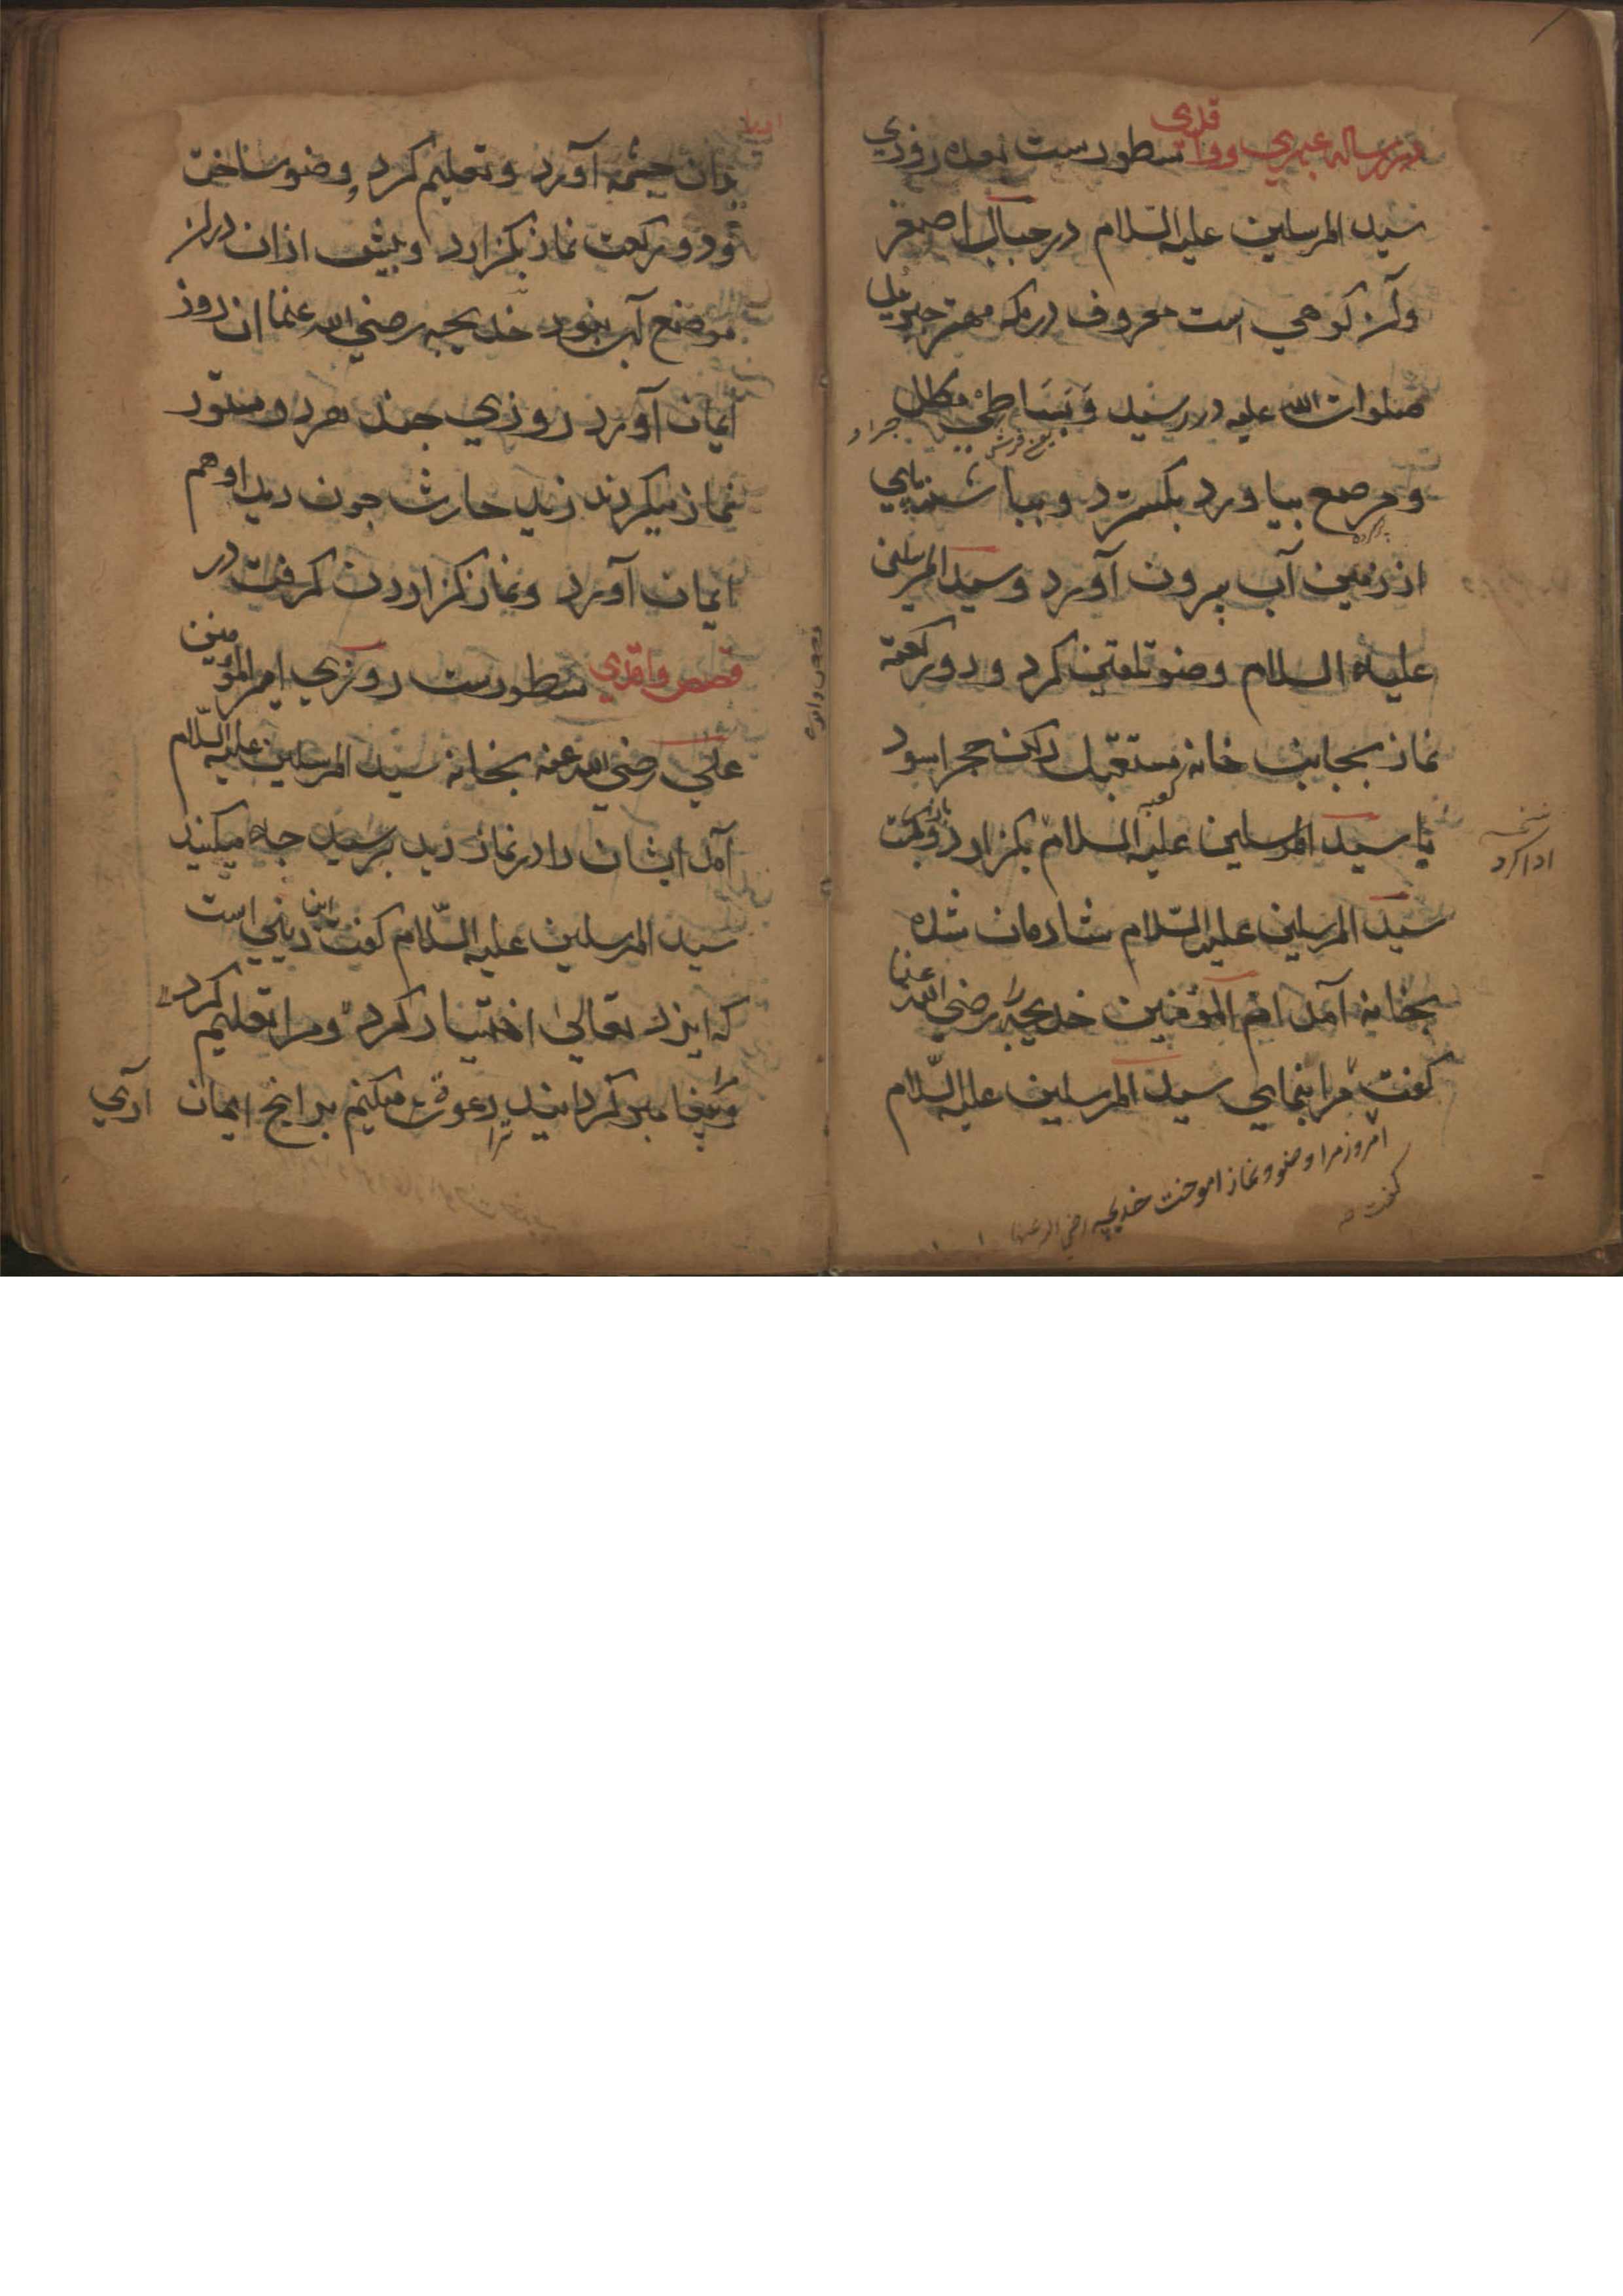 در رساله عبهری وواقدی سطورست روزی
سید المرسلین علیه السّلام در جبال اصغر
وآن کوهی است معروف در مکه مهتر جبرئیل
صلوات الله علیه در رسید و بساطی مکلل
ومرصع بیاورد بکسترد وبباشنه پای
از زمین آب بیرون آورد وسید المرسلین
علیه السلام وضو تلقین کرد ودو رکعت
نماز بجانب خانه کعبه مستقبل رکن حجر اسود
با سید المرسلین علیه السلام بکزارد
نسخه
ادا کرد
سید المرسلین علیه السّلام شادمان شده
بخانه آمد ام المومنین خدیجه را رضی الله عنها
کفت مرا بنمایی سید المرسلین علیه السّلام
امروز مرا وضو ونماز اموخت خدیجه رضی الله عنها
کفت که
بدان چشمه آورد وتعلیم کرد وضو ساخت
ودو رکعت نماز بکزارد وپیش ازان دران
موضع آب نبود خدیجه رضی الله عنها ان روز
ایمان آورد روزی چند هر دو مستور
نماز میکردند زید حارث چون دید او هم
ایمان آورد ونماز کزاردن کرفت در
قصص واقدی سطورست روزی امیر المؤمنین
علی رضی الله عنه بخانه سید المرسلین علیه السّلام
آمد ایشان را در نماز دید پرسید چه میکنید
سید المرسلین علیه السّلام کفت این دینی است
که ایزد تعالی اختیار کرد ومرا تعلیم کرد
وپیغامبر کردانید ترا دعوت میکنم بدانچ ایمان آری